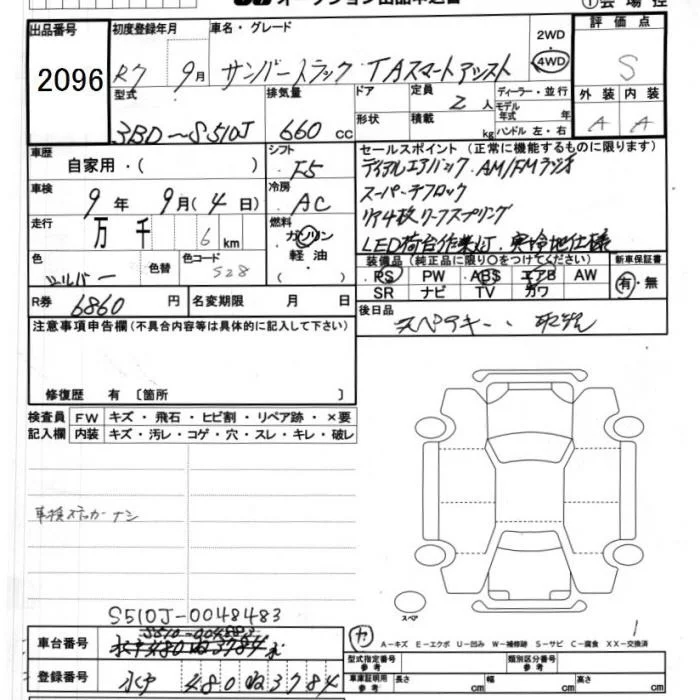 出品番号
2096
初度登録年月
R7 9月
車名・グレード
サンバートラック TAスマートアシスト
2WD
4WD
評価点
S
外装 内装
A A
型式
3BD-S510J
排気量
660 cc
ドア
形状
定員
2人
積載
kg
ディーラー・並行
モデル年式 年
ハンドル 左・右
車歴
自家用・( )
シフト
F5
セールスポイント (正常に機能するものに限ります)
デュアルエアバック. AM/FMラジオ
スーパーデフロック
リア4枚リーフスプリング
LED荷台作業灯. 寒冷地仕様
車検
9年 9月(4日)
冷房
AC
走行
万 千 6 km
燃料
ガソリン
軽油
( )
色
シルバー
色替
色コード
S28
装備品 (純正品に限り○をつけてください)
PS PW ABS エアB AW
SR ナビ TV カワ
新車保証書
有・無
R券
6860円
名変期限 月 日
後日品
スペアキー、取説
注意事項申告欄 (不具合内容等は具体的に記入して下さい)
修復歴 有 〔箇所 〕
検査員記入欄
FW キズ・飛石・ヒビ割・リペア跡・×要
内装 キズ・汚レ・コゲ・穴・スレ・キレ・破レ
車検ステッカーナシ
スペア
S510J-0048483
車台番号
S510-0048483
登録番号
480 3784
A-キズ E-エクボ U-凹み W-補修跡 S-サビ C-腐食 XX-交換済
型式指定番号 参考
類別区分番号 参考
車庫証明用 参考
長さ cm
幅 cm
高さ cm